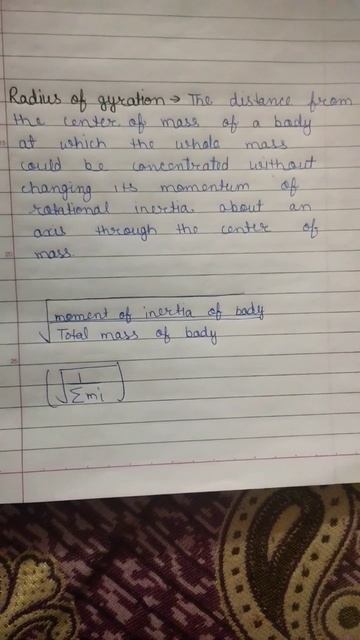 Radius of gyration → The distance from
the center of mass of a body
at which the whole mass
could be concentrated without
changing its momentum of
rotational inertia about an
axis through the center of
mass.
√(moment of inertia of body
Total mass of body)
(√(1
Σmi))